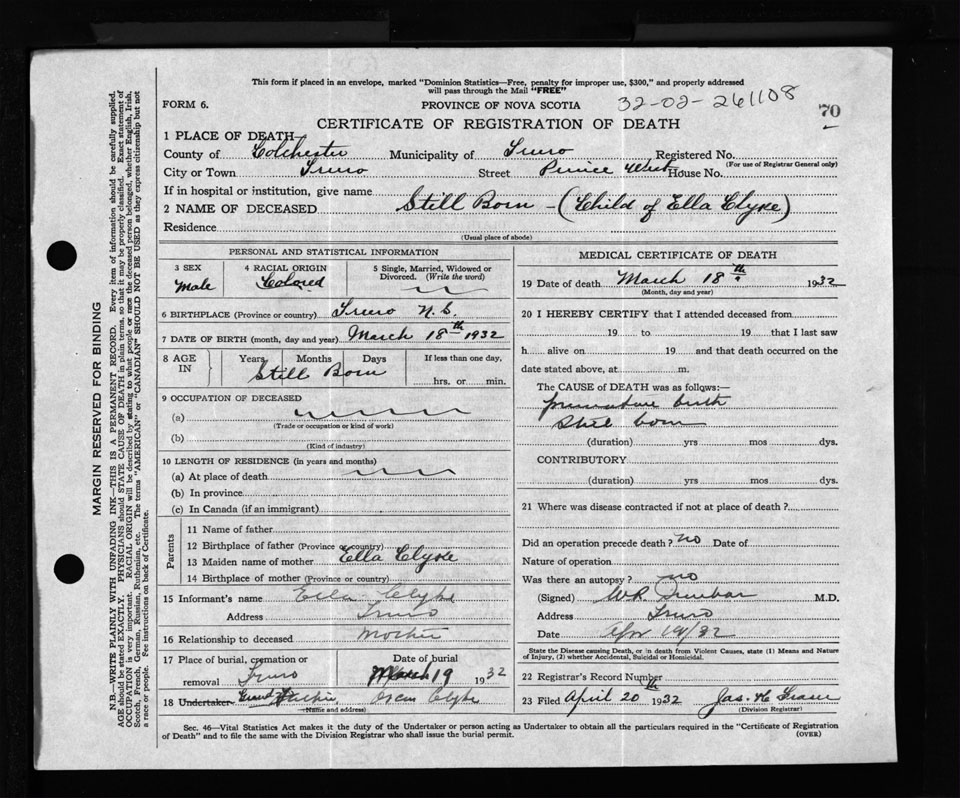 This form if placed in an envelope, marked "Dominion Statistics—Free, penalty for improper use, $300," and properly addressed
will pass through the Mail "FREE"
FORM 6. PROVINCE OF NOVA SCOTIA 32-02-261108 70
CERTIFICATE OF REGISTRATION OF DEATH
1 PLACE OF DEATH
County of Colchester Municipality of Truro Registered No.
(For use of Registrar General only)
City or Town Truro Street Prince West House No.
If in hospital or institution, give name
2 NAME OF DECEASED Still Born - (Child of Ella Clyke)
Residence
(Usual place of abode)
PERSONAL AND STATISTICAL INFORMATION
3 SEX 4 RACIAL ORIGIN 5 Single, Married, Widowed or
Divorced. (Write the word)
Male Colored
6 BIRTHPLACE (Province or country) Truro N.S.
7 DATE OF BIRTH (month, day and year) March 18th 1932
8 AGE IN Years Months Days If less than one day,
Still Born hrs. or min.
9 OCCUPATION OF DECEASED
(a)
(Trade or occupation or kind of work)
(b)
(Kind of industry)
10 LENGTH OF RESIDENCE (in years and months)
(a) At place of death
(b) In province
(c) In Canada (if an immigrant)
Parents
11 Name of father
12 Birthplace of father (Province or country)
13 Maiden name of mother Ella Clyke
14 Birthplace of mother (Province or country)
15 Informant's name Ella Clyke
Address Truro
16 Relationship to deceased Mother
17 Place of burial, cremation or removal Truro Date of burial March 19 1932
18 Undertaker Grand Clyke
(Name and address)
MEDICAL CERTIFICATE OF DEATH
19 Date of death March 18th 1932
(Month, day and year)
20 I HEREBY CERTIFY that I attended deceased from
19 to 19 that I last saw
h alive on 19 and that death occurred on the
date stated above, at m.
The CAUSE of DEATH was as follows:—
premature birth
Still born
(duration) yrs mos dys.
CONTRIBUTORY
(duration) yrs mos dys.
21 Where was disease contracted if not at place of death?
Did an operation precede death? no Date of
Nature of operation
Was there an autopsy? no
(Signed) W.R. Dunbar M.D.
Address Truro
Date Apr 19/32
State the Disease causing Death, or in death from Violent Causes, state (1) Means and Nature
of Injury, (2) whether Accidental, Suicidal or Homicidal.
22 Registrar's Record Number
23 Filed April 20th 1932 Jas. H. Fraser
(Division Registrar)
Sec. 46—Vital Statistics Act makes it the duty of the Undertaker or person acting as Undertaker to obtain all the particulars required in the "Certificate of Registration
of Death" and to file the same with the Division Registrar who shall issue the burial permit. (OVER)
MARGIN RESERVED FOR BINDING
N.B.—WRITE PLAINLY WITH UNFADING INK—THIS IS A PERMANENT RECORD. Every item of information should be carefully supplied.
AGE should be stated EXACTLY. PHYSICIANS should STATE CAUSE OF DEATH in plain terms, so that it may be properly classified. Exact statement of
OCCUPATION is very important. RACIAL ORIGIN will be described by stating to what people or race the deceased person belonged, whether English, Irish,
Scotch, French, German, Russian, Ruthenian, etc. The terms "AMERICAN" or "CANADIAN" SHOULD NOT BE USED as they express citizenship but not
a race or people. Fee instructions on back of Certificate.